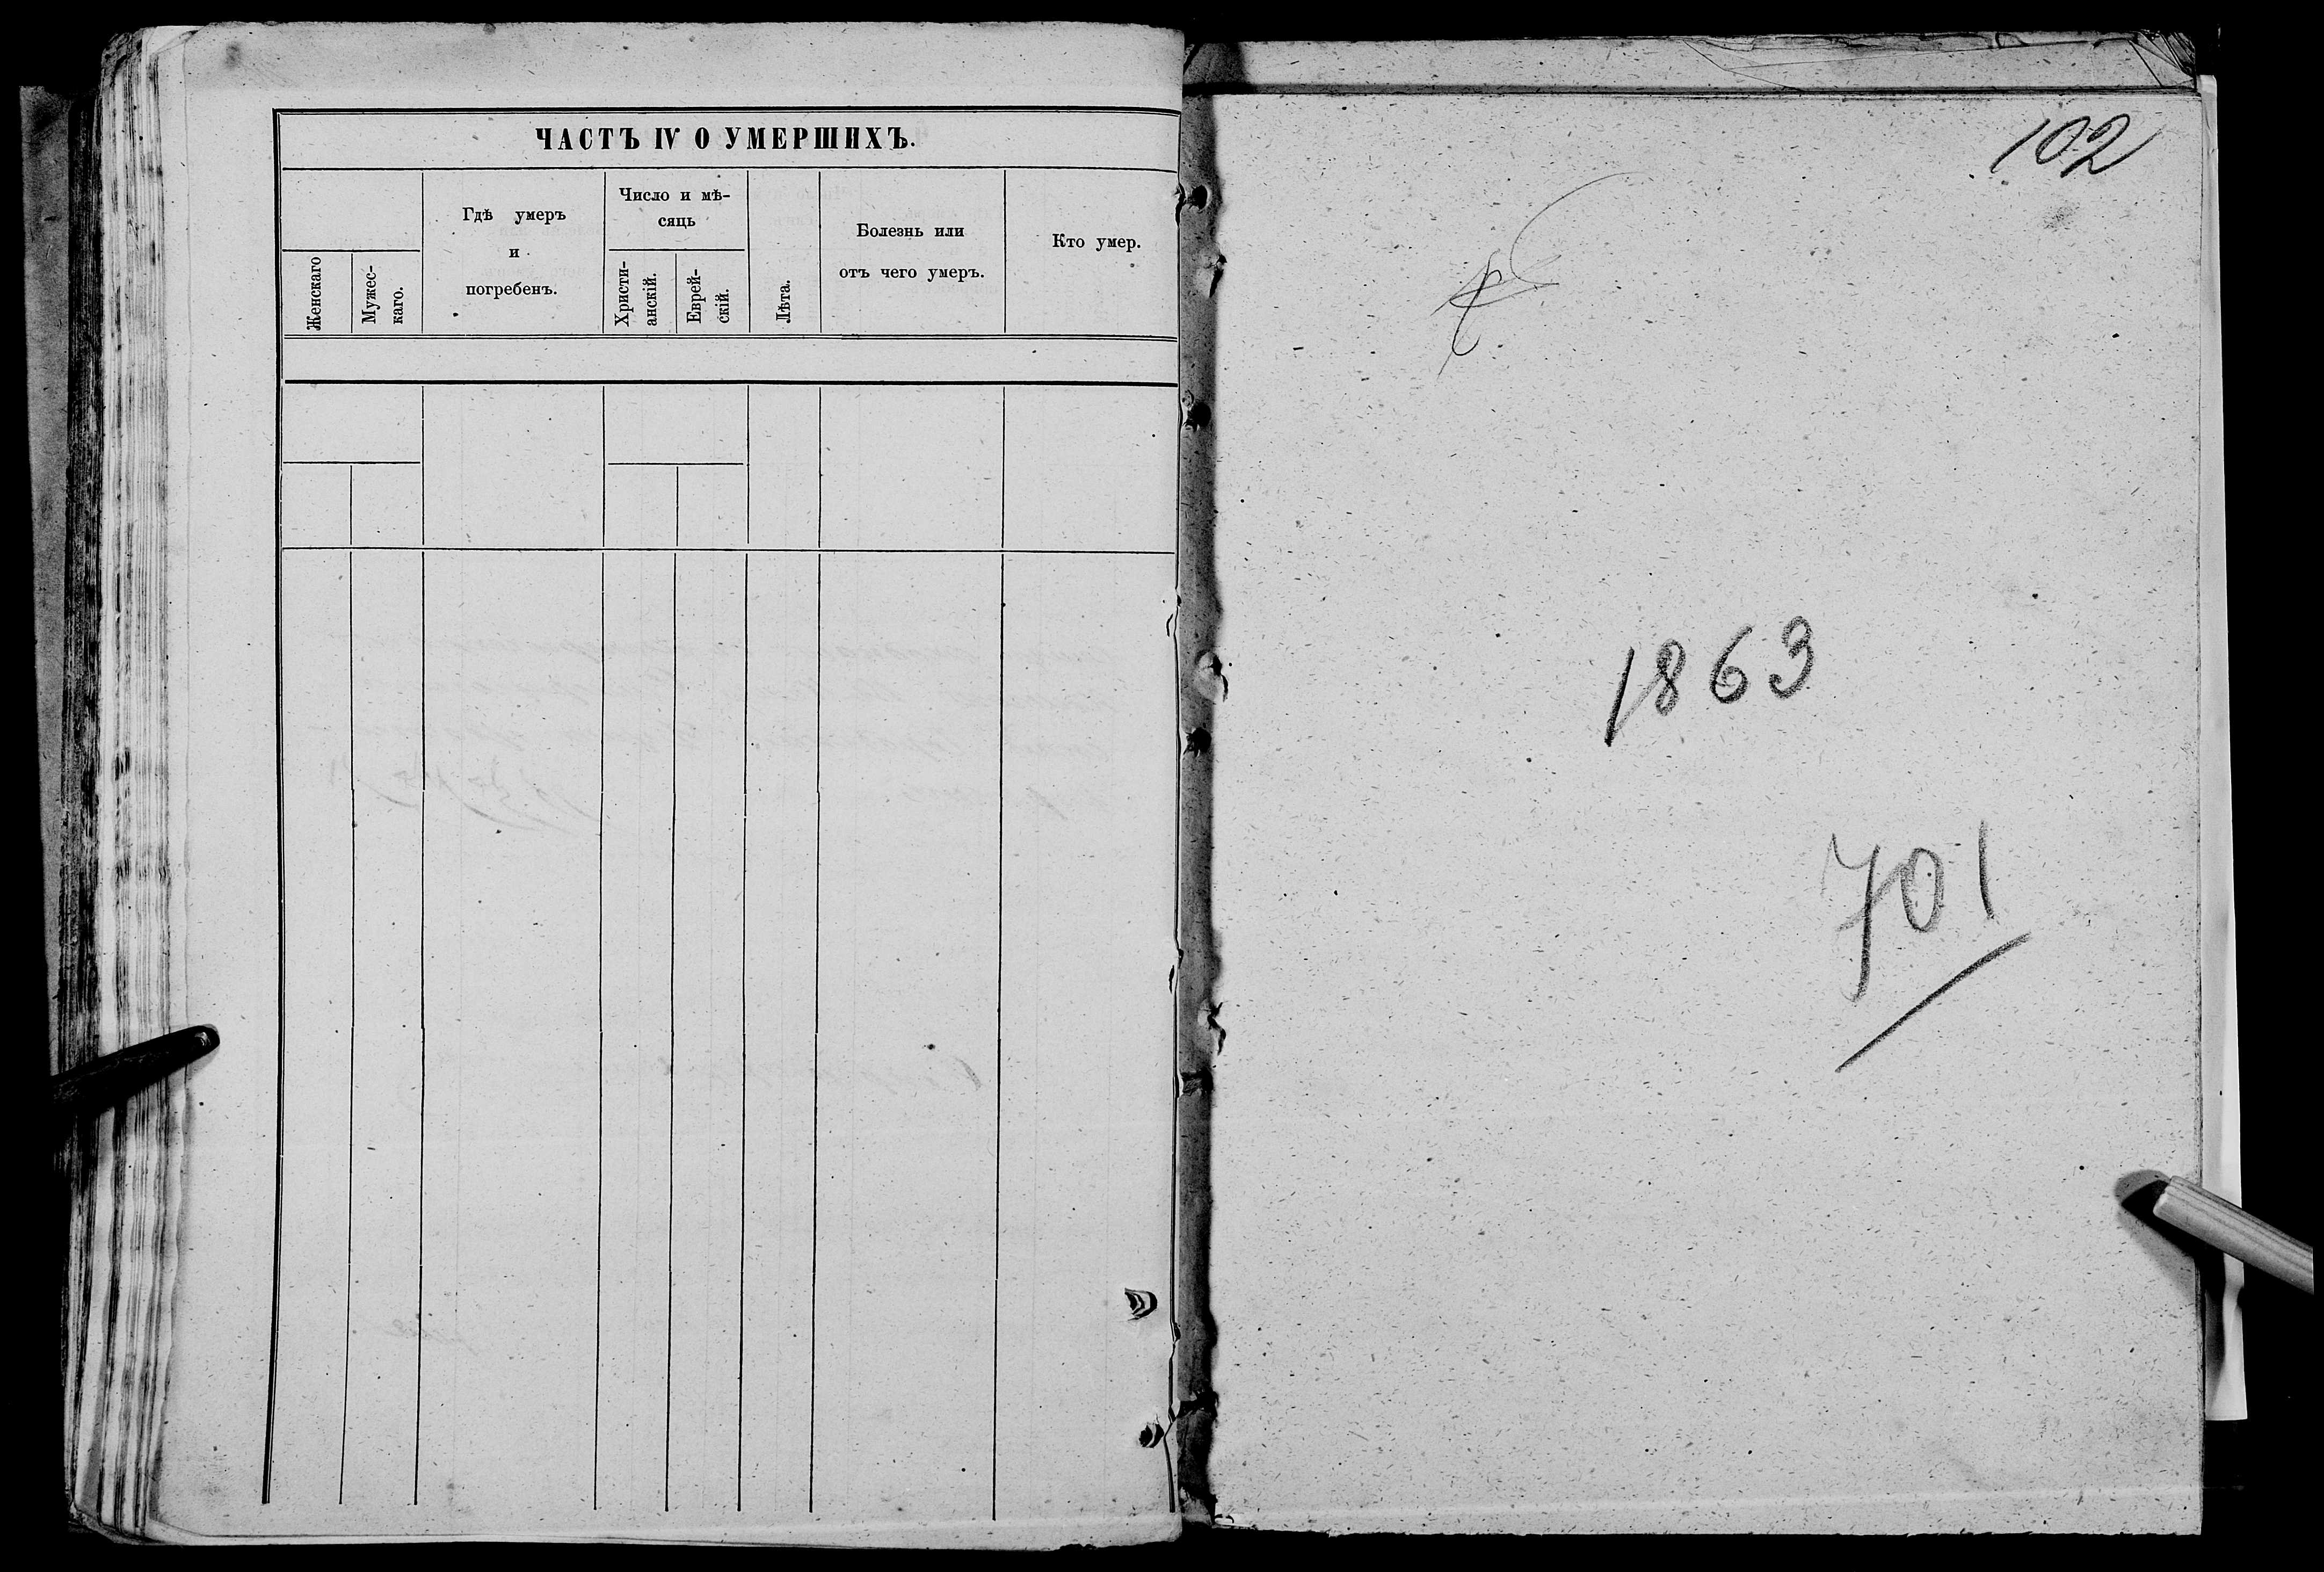 ЧАСТЪ IV О УМЕРШИХЪ.
Женскаго
Мужес-
каго.
Гдѣ умеръ
и
погребенъ.
Число и мѣ-
сяць
Христи-
анскій.
Еврей-
скій.
Лѣта.
Болезнь или
отъ чего умеръ.
Кто умер.
102
1863
701